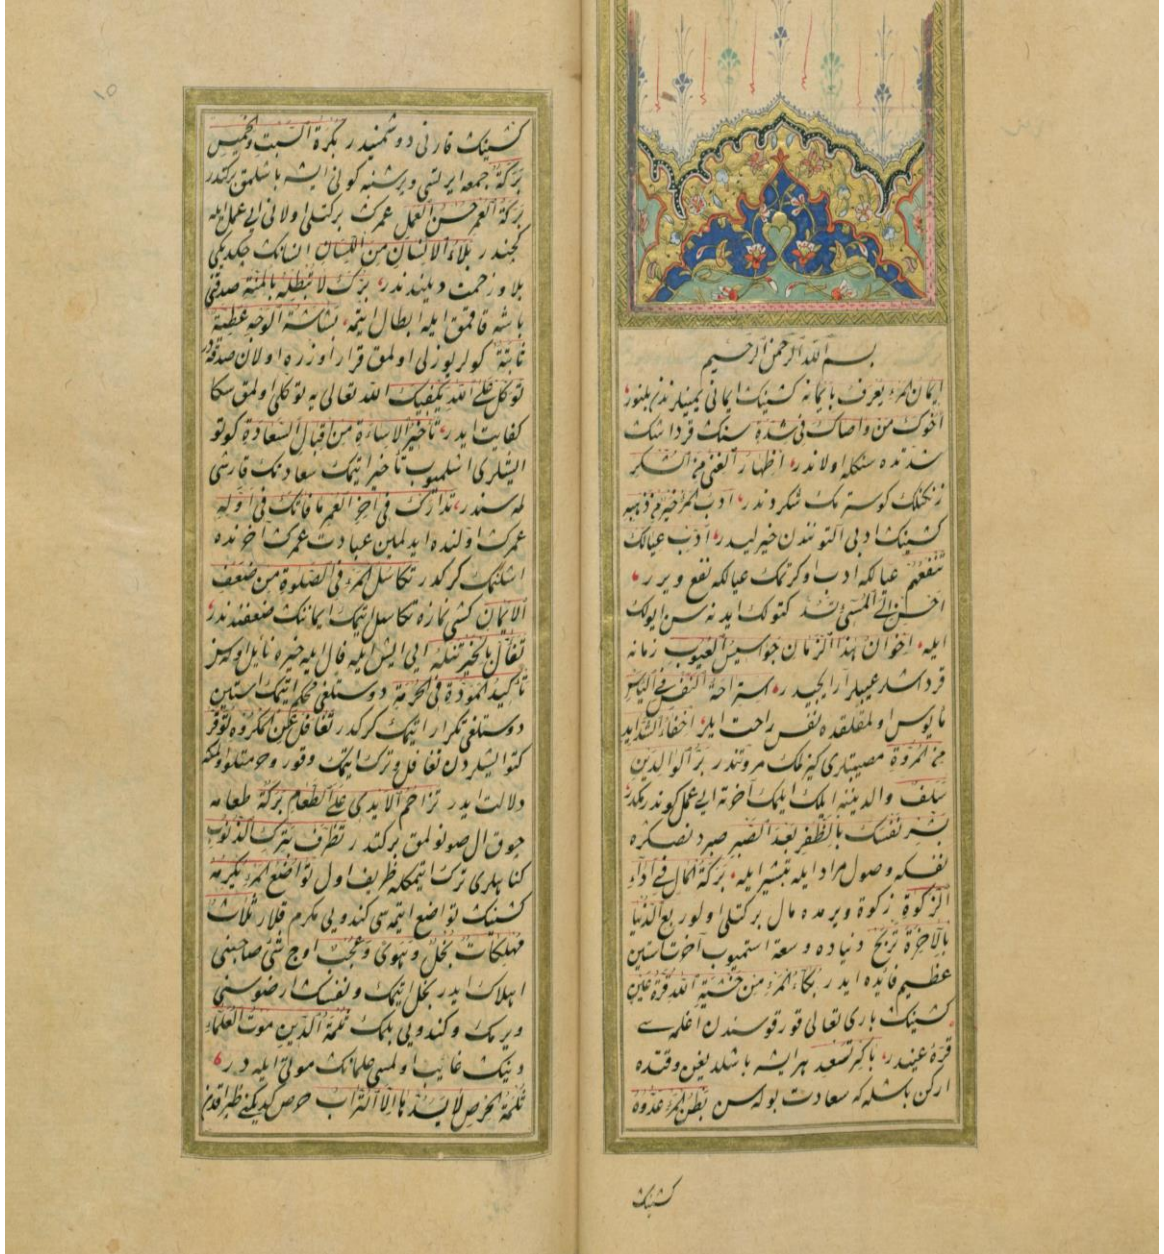 بسم الله الرحمن الرحيم
ايمان المرء يعرف بايمانه كشينك ايمانى يمينلرندن بلنور
اخوك من واساك فى شدة سنك قرداشك
شدنده سنكله اولاندر اظهار الغنى من الشكر
زنكنلك كوسترمك شكردندر ادب المرء خير من ذهبه
كشينك ادبى التونندن خيرليدر ادب عيالك
تنفعهم عيالكه ادب اوكرتمك عيالكه نفع ويرر
احسن الى المسىء تسد كتولك ايدنه سن ايولك
ايله اخوان هذا الزمان جواسيس العيوب زمانه
قرداشلر عيبلر آرايجيدر استراحة النفس فى الياس
مايوس اولمقلقده نفس راحت ايلر اخفاء الشدايد
من المروة مصيبتلرى كيزلمك مروتندر بر الوالدين
سلف والدينه ايلك ايلمك آخرته ايى عمل كوندرمكدر
بشر نفسك بالظفر بعد الصبر صبردنصكره
نفسكه وصول مراد ايله تبشير ايله بركة المال فى اداء
الزكوة زكوة ويرمده مال بركتلى اولور بع الدنيا
بالآخرة تربح دنياده وسعة استميوب آخرت استين
عظيم فائده ايدر بكاء المرء من خشية الله قرة عين
كشينك بارى تعالى قورقوسندن اغلمسى
قرة عيندر باكر تسعد هر ايشه باشلديغين وقتده
اركن باشله كه سعادت بوله سن بطن المرء عدوه
كشينك
كشينك قارنى دوشمنيدر بكرة السبت والخميس
بركة جمعه ايرتسى وپرشنبه كونى ايشه باشلمق بركتدر
بركة العمر حسن العمل عمرك بركتلى اولانى ايى عمل ايله
كچندر بلاء الانسان من اللسان انسانك چكديكى
بلا وزحمت ديلندندر برك لا تبطله بالمنة صدقنى
باشه قاقمق ايله ابطال ايتمه بشاشة الوجه عطية
ثانية كولر يوزلى اولمق قرار اوزره اولان صدقه در
توكل على الله يكفيك الله تعالى يه توكلى اولمق سكا
كفايت ايدر تأخير الاساءة من اقبال السعادة كوتو
ايشلرى اشلميوب تأخير ايتمك سعادتك قارشى
لمه سندر تدارك فى آخر العمر ما فاتك فى اوله
عمرك اولنده ايدلمين عباداتى عمرك آخرنده
اشلمك كركدر تكاسل المرء فى الصلوة من ضعف
الايمان كشى نمازه تكاسل ايتمك ايمانك ضعفندندر
تفأل بالخير تنله ايى ايش ايله فال ايله خيره نائل اوله سن
تأكيد المودة فى الحرمة دوستلغى محكم ايتمك استين
دوستلغى تكرار ايتمك كركدر تغافل عن المكروه توقر
كتو ايشلردن تغافل وترك ايتمك وقور وحرمتلو اولمغه
دلالت ايدر تزاحم الايدى على الطعام بركة طعامه
چوق ال صونولمق بركتدر تظرف بترك الذنوب
كناهلرى ترك ايتمكله ظريف اول تواضع المرء يكرمه
كشينك تواضع ايتمسى كندويى مكرم قيلار ثلاث
مهلكات بخل وهوى وعجب اوچ شى صاحبنى
اهلاك ايدر بخل ايتمك ونفسك ارضوسنى
ويرمك وكندويى بكنمك ثلمة الدين موت العلماء
دينك غائب اولمسى علمانك موتى ايله در
ثلمة الحرص لا يسدها الا التراب حرص كديكنى طپراقدن